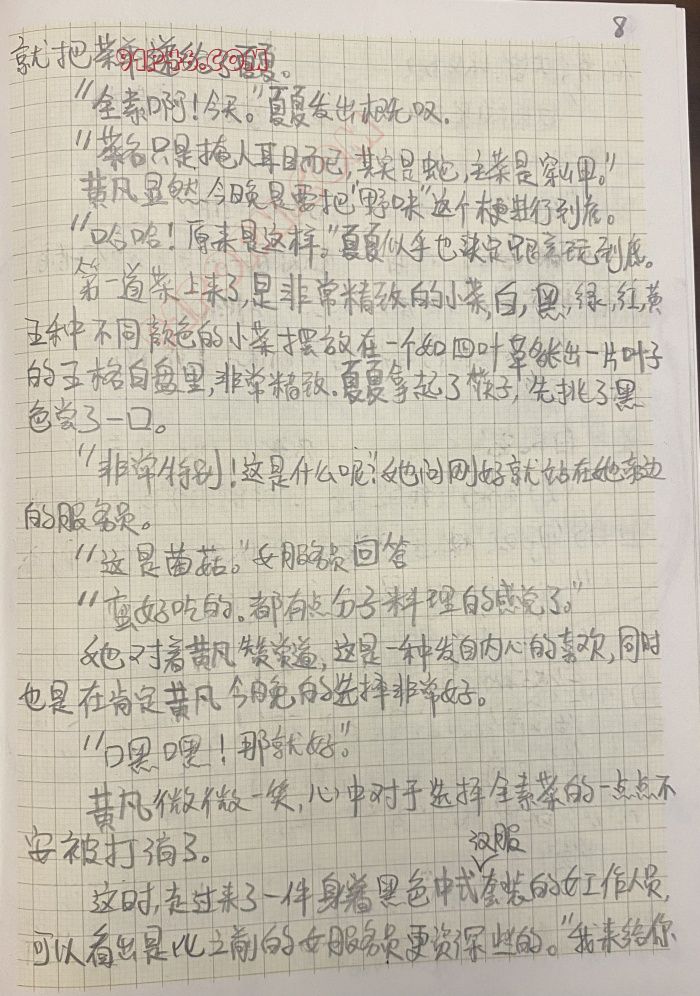 8
就把菜单递给了夏夏。
"全素啊!今天。"夏夏发出感叹.
"菜名只是掩人耳目而已,其实是蛇,主菜是穿山甲。"
黄凡显然今日晚是要把"野味"这个梗进行到底。
"哈哈!原来是这样。"夏夏似乎也决定跟玩到底。
第一道菜上来了,是非常精致的小菜,白,黑,绿,红,黄
五种不同颜色的小菜摆放在一个如四叶草多长出一片叶子
的五格白盘里,非常精致.夏夏拿起了筷子,先挑了黑
色尝了一口。
"非常特别!这是什么呢?"她问刚好就站在她旁边
的服务员。
"这是菌菇。"女服务员回答
"蛮好吃的。都有点分子料理的感觉了。"
她对着黄凡赞赏道,这是一种发自内心的喜欢,同时
也是在肯定黄凡今日晚的选择非常好。
"嘿嘿!那就好。"
黄凡微微一笑,心中对于选择全素菜的一点点不
安被打消了。
汉服
这时,走过来了一件身着黑色中式套装的女工作人员,
可以看出是比之前的女服务员更资深些的。"我来给你